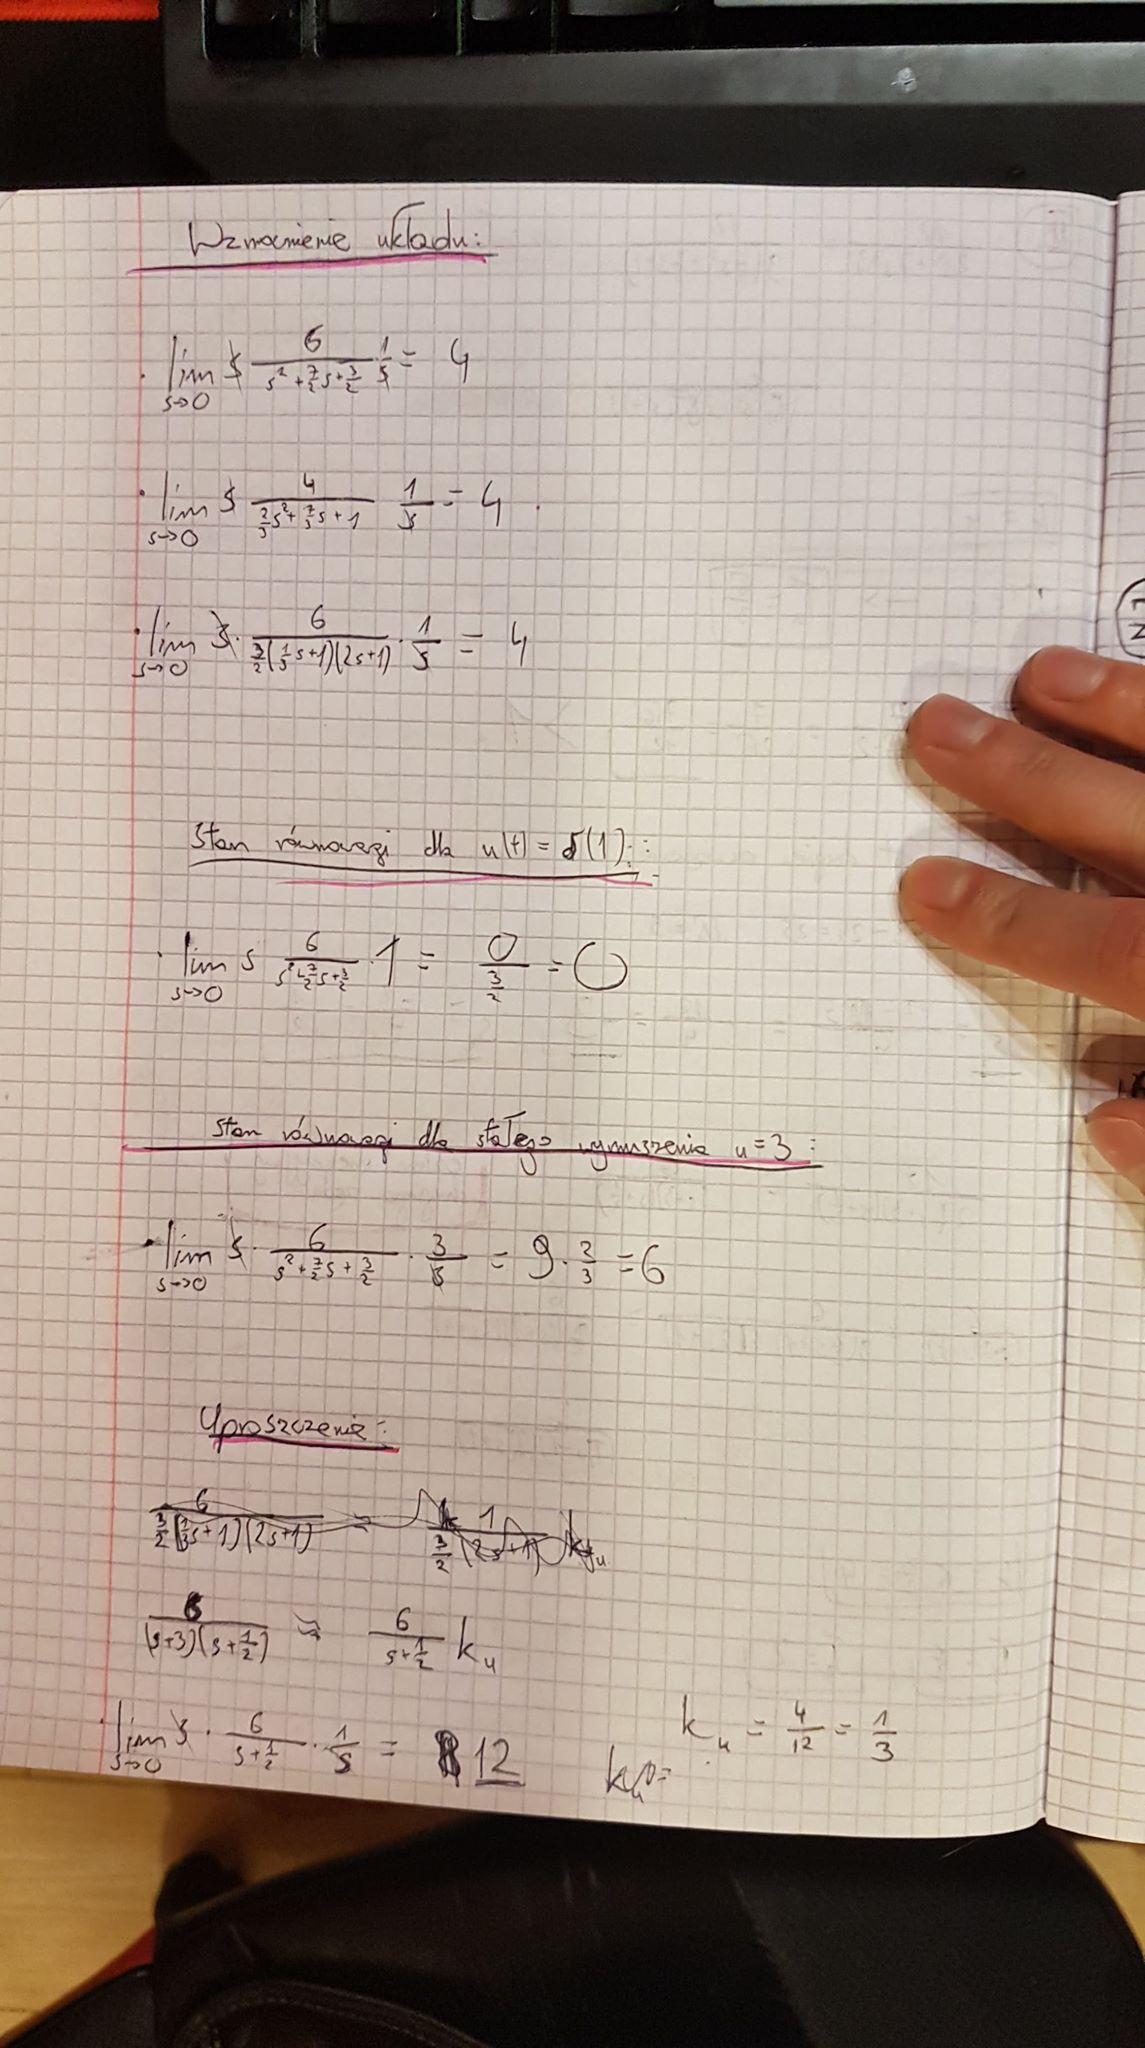 Wzmocnienie układu:
lim s→0 s 6/(s² + 7/2 s + 3/2) 1/s = 4
lim s→0 s 4/(2/3 s² + 7/3 s + 1) 1/s = 4
lim s→0 s · 6/(3/2 (1/3 s+1)(2s+1)) · 1/s = 4
Stan równowagi dla u(t) = δ(1):
lim s→0 s 6/(s² + 7/2 s + 3/2) · 1 = 0/(3/2) = 0
Stan równowagi dla stałego wymuszenia u = 3:
lim s→0 s · 6/(s² + 7/2 s + 3/2) · 3/s = 9 · 2/3 = 6
Uproszczenie:
6/(3/2 (1/3 s+1)(2s+1)) ≈ 1/(3/2 (2s+1)) k_u
6/((s+3)(s+1/2)) ≈ 6/(s+1/2) k_u
lim s→0 s · 6/(s+1/2) · 1/s = 12
k_u = 4/12 = 1/3